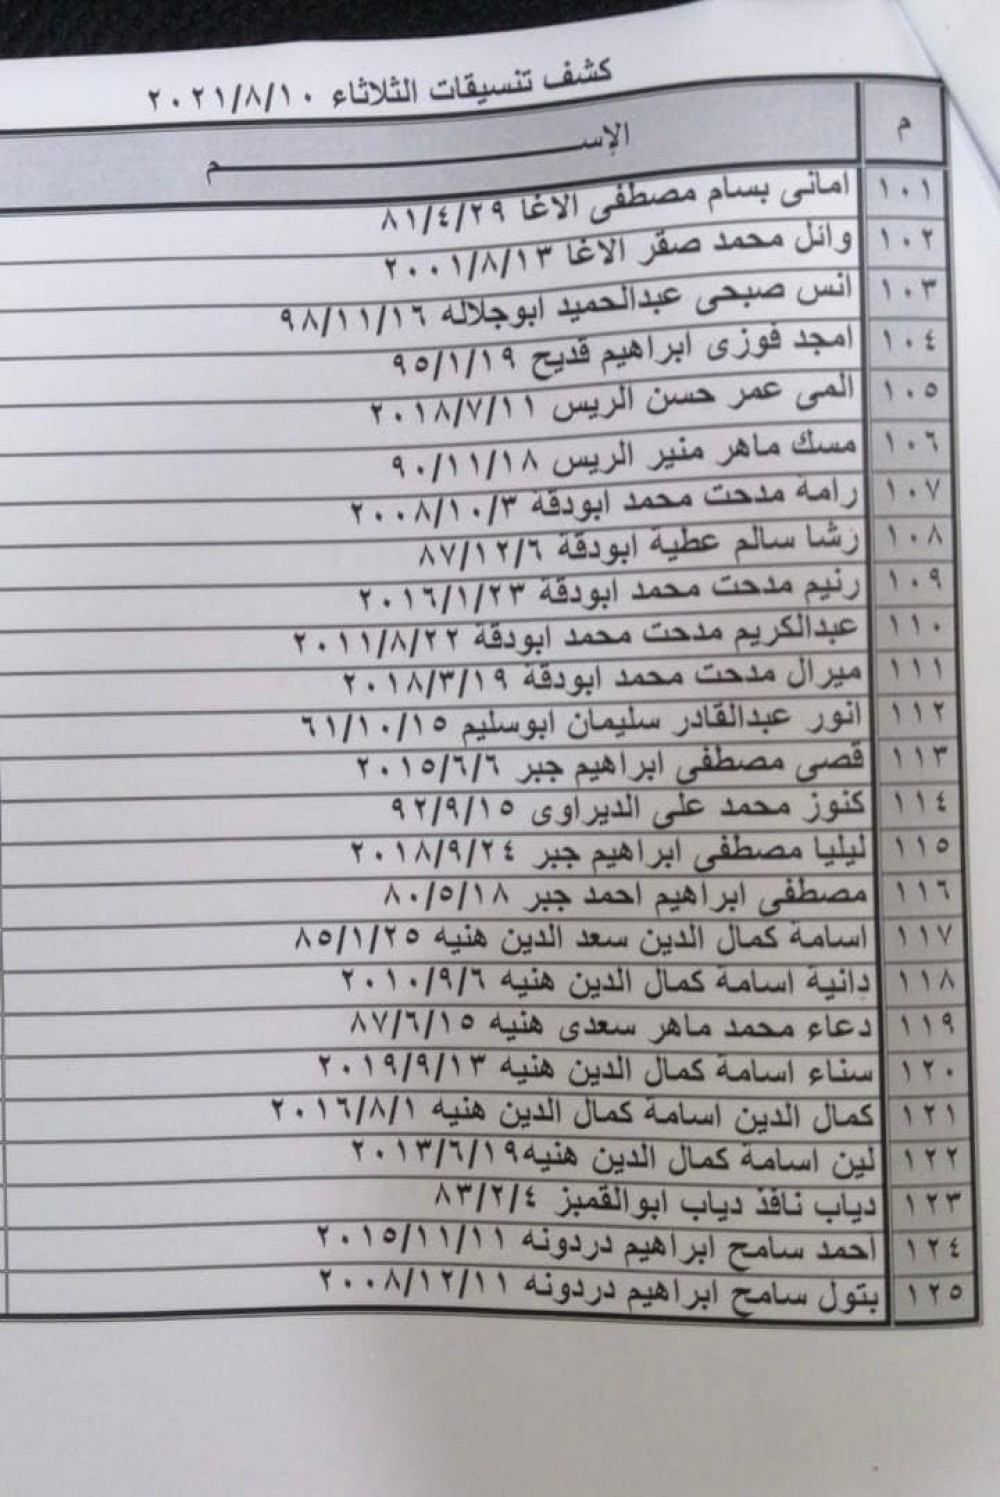 كشف تنسيقات الثلاثاء ٢٠٢١/٨/١٠
م الإســـــــــــم
١٠١ امانى بسام مصطفى الاغا ٨١/٤/٢٩
١٠٢ وائل محمد صقر الاغا ٢٠٠١/٨/١٣
١٠٣ انس صبحى عبدالحميد ابوجلاله ٩٨/١١/١٦
١٠٤ امجد فوزى ابراهيم قديح ٩٥/١/١٩
١٠٥ المى عمر حسن الريس ٢٠١٨/٧/١١
١٠٦ مسك ماهر منير الريس ٩٠/١١/١٨
١٠٧ رامة مدحت محمد ابودقة ٢٠٠٨/١٠/٣
١٠٨ رشا سالم عطية ابودقة ٨٧/١٢/٦
١٠٩ رنيم مدحت محمد ابودقة ٢٠١٦/١/٢٣
١١٠ عبدالكريم مدحت محمد ابودقة ٢٠١١/٨/٢٢
١١١ ميرال مدحت محمد ابودقة ٢٠١٨/٣/١٩
١١٢ انور عبدالقادر سليمان ابوسليم ٦١/١٠/١٥
١١٣ قصى مصطفى ابراهيم جبر ٢٠١٥/٦/٦
١١٤ كنوز محمد على الديراوى ٩٢/٩/١٥
١١٥ ليليا مصطفى ابراهيم جبر ٢٠١٨/٩/٢٤
١١٦ مصطفى ابراهيم احمد جبر ٨٠/٥/١٨
١١٧ اسامة كمال الدين سعد الدين هنيه ٨٥/١/٢٥
١١٨ دانية اسامة كمال الدين هنيه ٢٠١٠/٩/٦
١١٩ دعاء محمد ماهر سعدى هنيه ٨٧/٦/١٥
١٢٠ سناء اسامة كمال الدين هنيه ٢٠١٩/٩/١٣
١٢١ كمال الدين اسامة كمال الدين هنيه ٢٠١٦/٨/١
١٢٢ لين اسامة كمال الدين هنيه٢٠١٣/٦/١٩
١٢٣ دياب نافذ دياب ابوالقمبز ٨٣/٢/٤
١٢٤ احمد سامح ابراهيم دردونه ٢٠١٥/١١/١١
١٢٥ بتول سامح ابراهيم دردونه ٢٠٠٨/١٢/١١